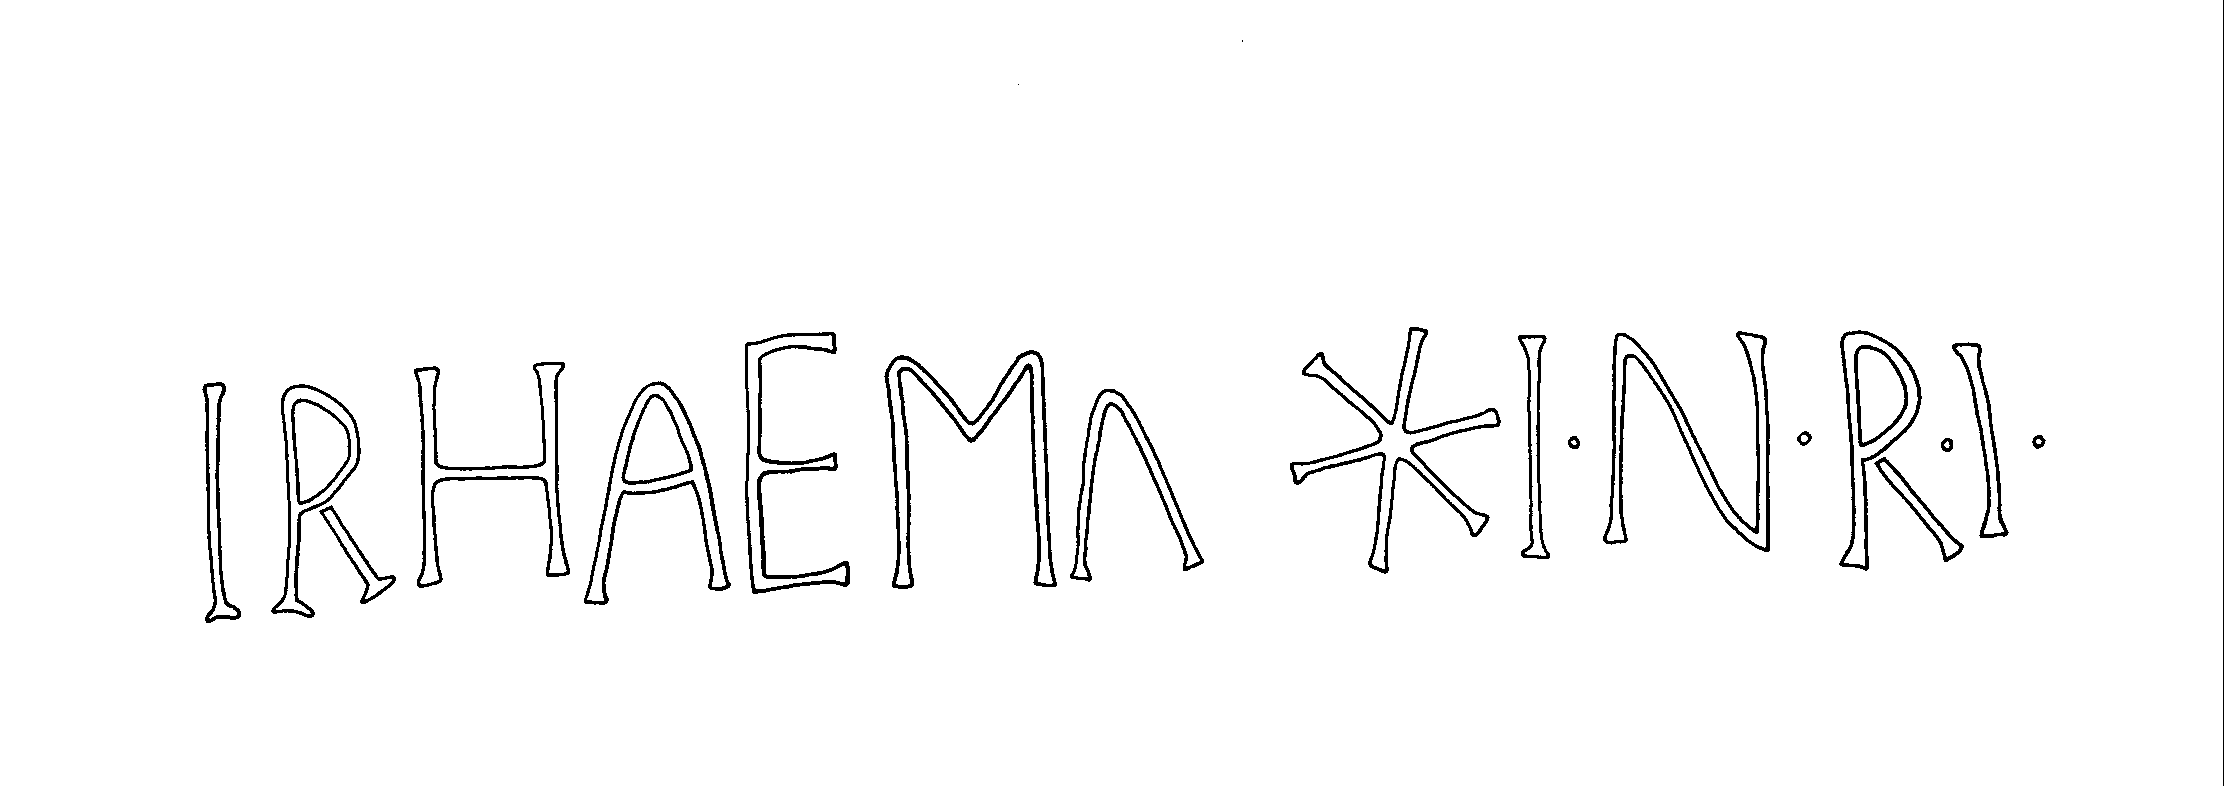 IRHAEMΛ *I·N·R·I·